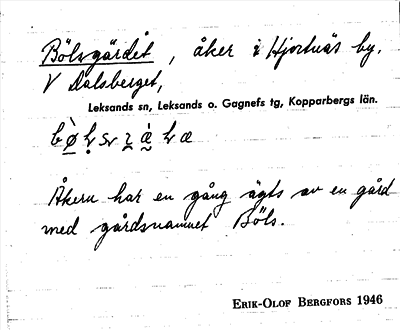 Bölsgärdet, åker i Hjortnäs by,
V Dalsberget,
Leksands sn, Leksands o. Gagnefs tg, Kopparbergs län.
Åkern har en gång ägts av en gård
med gårdsnamnet Böls.
ERIK-OLOF BERGFORS 1946